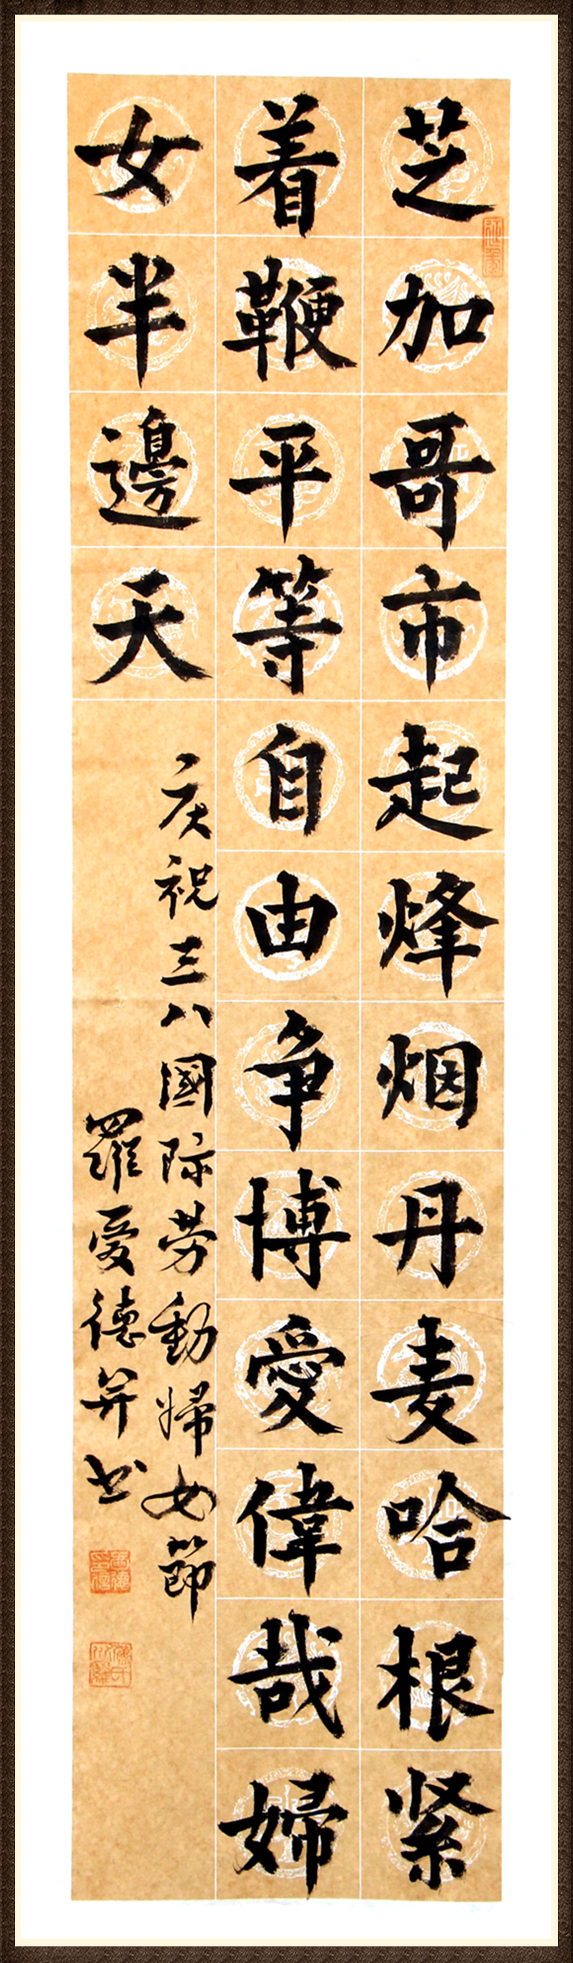 芝加哥市起烽烟丹麦哈根紧
着鞭平等自由争博愛偉哉婦
女半邊天
庆祝三八國际劳動婦女節
羅爱德并书